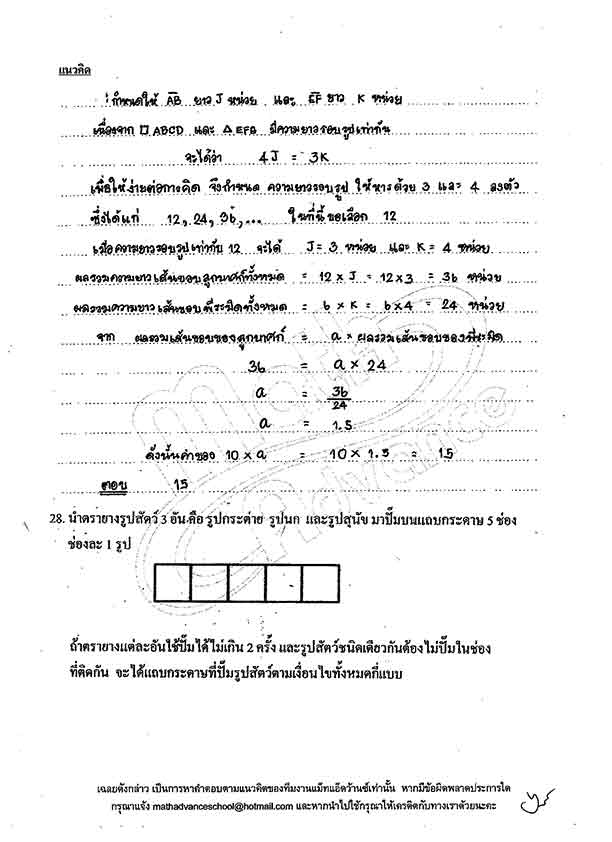 แนวคิด
กำหนดให้ AB ยาว J หน่วย และ EF ยาว K หน่วย
เนื่องจาก □ ABCD และ △ EFG มีความยาวรอบรูปเท่ากัน
จะได้ว่า 4J = 3K
เพื่อให้ง่ายต่อการคิด จึงกำหนด ความยาวรอบรูป ให้หารด้วย 3 และ 4 ลงตัว
ซึ่งได้แก่ 12, 24, 36, ... ในที่นี้ขอเลือก 12
เมื่อความยาวรอบรูปเท่ากับ 12 จะได้ J = 3 หน่วย และ K = 4 หน่วย
ผลรวมความยาวเส้นขอบลูกบาศก์ทั้งหมด = 12 × J = 12 × 3 = 36 หน่วย
ผลรวมความยาวเส้นขอบพีระมิดทั้งหมด = 6 × K = 6 × 4 = 24 หน่วย
จาก ผลรวมเส้นขอบของลูกบาศก์ = a × ผลรวมเส้นขอบของพีระมิด
36 = a × 24
a = 36/24
a = 1.5
ดังนั้นค่าของ 10 × a = 10 × 1.5 = 15
ตอบ 15
Math Advance
28. นำตรายางรูปสัตว์ 3 อัน คือ รูปกระต่าย รูปนก และรูปสุนัข มาปั๊มบนแถบกระดาษ 5 ช่อง
ช่องละ 1 รูป
ถ้าตรายางแต่ละอันใช้ปั๊มได้ไม่เกิน 2 ครั้ง และรูปสัตว์ชนิดเดียวกันต้องไม่ปั๊มในช่อง
ที่ติดกัน จะได้แถบกระดาษที่ปั๊มรูปสัตว์ตามเงื่อนไขทั้งหมดกี่แบบ
เฉลยดังกล่าว เป็นการหาคำตอบตามแนวคิดของทีมงานแม็ทแอ๊ดว้านซ์เท่านั้น หากมีข้อผิดพลาดประการใด
กรุณาแจ้ง mathadvanceschool@hotmail.com และหากนำไปใช้กรุณาให้เครดิตกับทางเราด้วยนะคะ